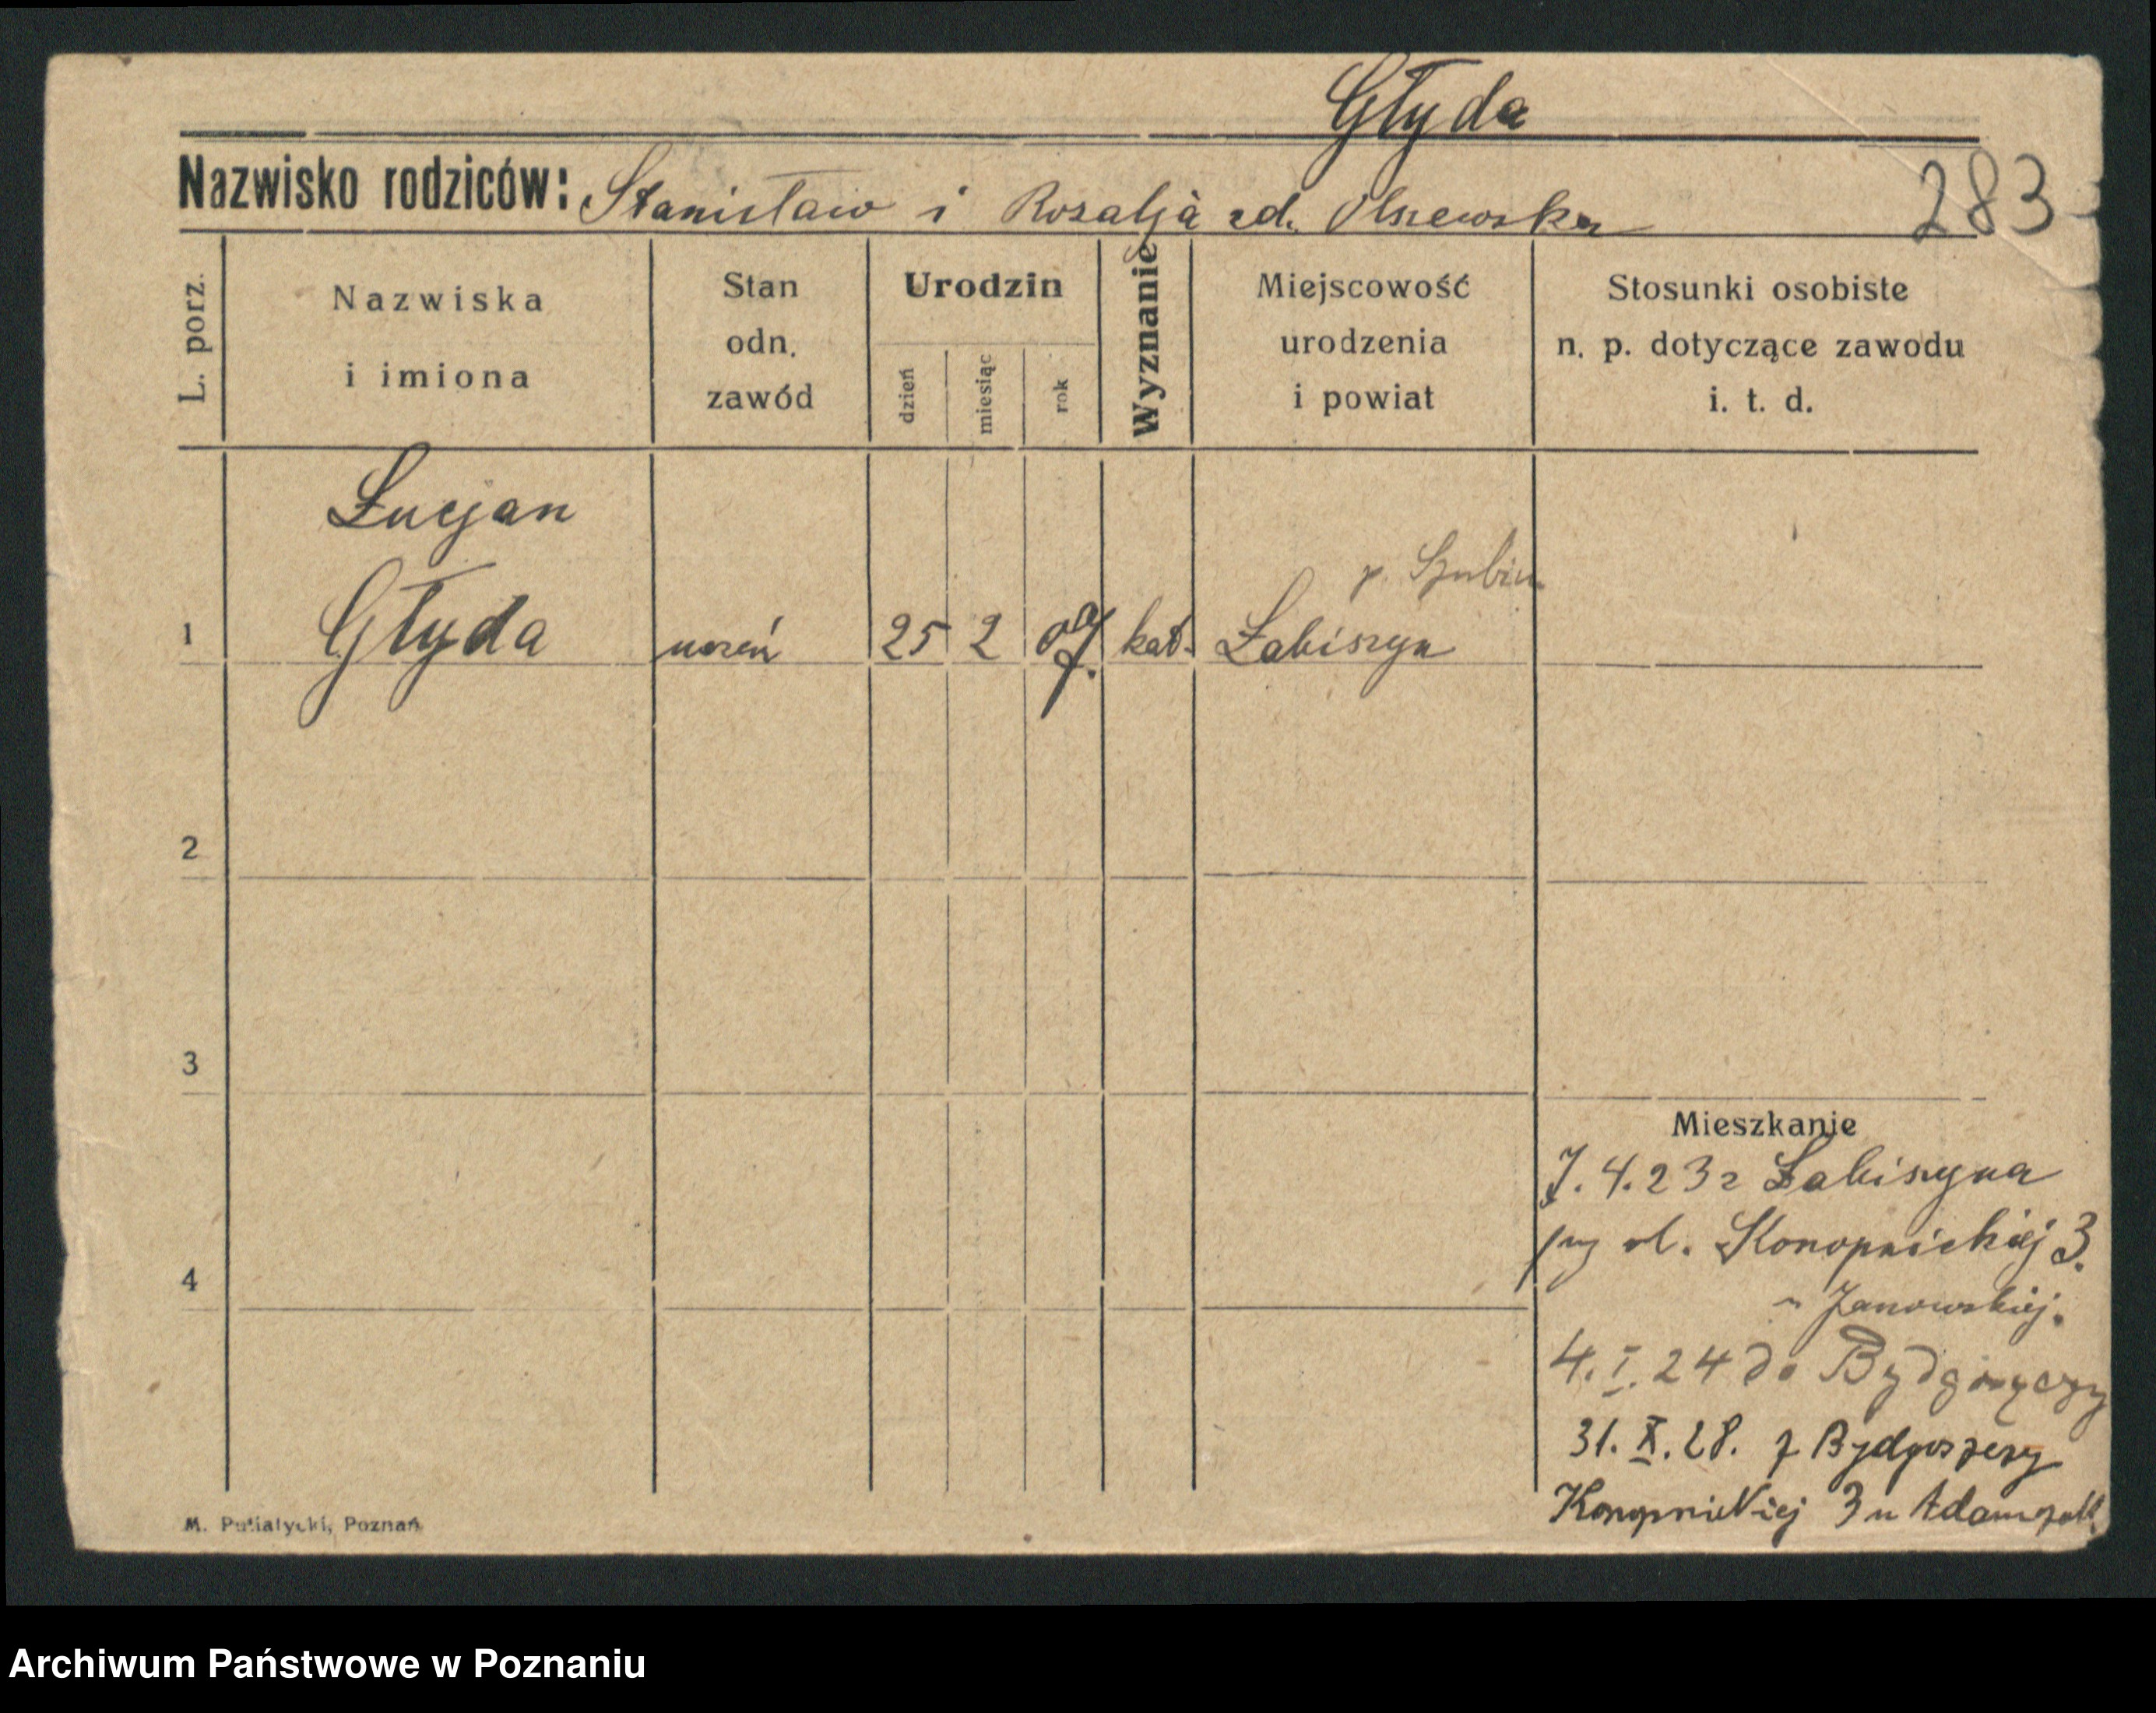 Głyda
Nazwisko rodziców: Stanisław i Rozalja zd. Olszewska
283
L. porz.
Nazwiska
i imiona
Stan
odn.
zawód
Urodzin
dzień
miesiąc
rok
Wyznanie
Miejscowość
urodzenia
i powiat
Stosunki osobiste
n. p. dotyczące zawodu
i. t. d.
Łucjan
p. Szubin
1 Głyda uczeń 25 2 kat. Łabiszyn
2
3
4
Mieszkanie
7. 4. 23 z Łabiszyna
przy ul. Konopnickiej 3.
u Janowskiej.
4. I. 24 do Bydgoszczy
31. X. 28. z Bydgoszczy
Konopnickiej 3 u
M. Putiatycki, Poznań
Archiwum Państwowe w Poznaniu